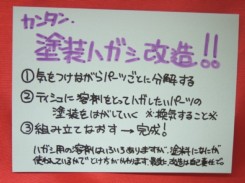 カンタン、
塗装ハガシ改造!!
①気をつけながらパーツごとに分解する
②ティシュに溶剤をとってハガしたいパーツの
塗装をはがしていく ※換気すること※
③組み立てなおす→完成!
ハガシ用の溶剤はいろいろありますが、塗料になにが
使われているかで
改造は自己責任で